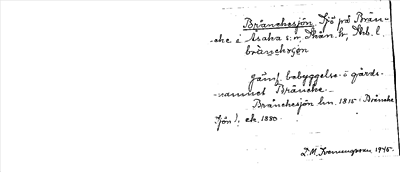 Bränchesjön. Sjö på Brän-
-che i Asaka s:n, Skån. h, Skb. l.
bränchsjön
Jämf. bebyggelse- o gårds-
-namnet Bräncke.
Bränchesjön lm. 1815. (Bräncke
Sjön), ek. 1880.
D.M. 1945.